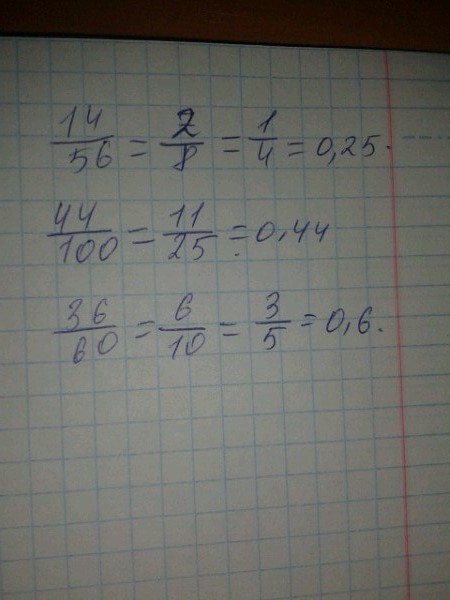 14/56 = 2/8 = 1/4 = 0,25.
44/100 = 11/25 = 0,44
36/60 = 6/10 = 3/5 = 0,6.